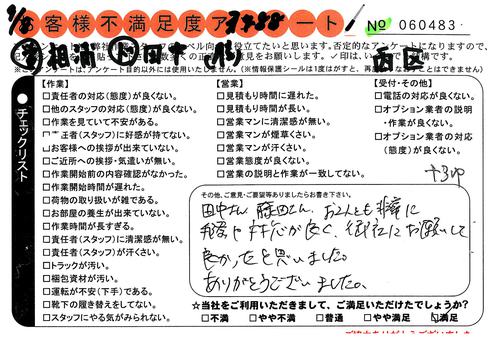 お客様不満足度アンケート
No 060483
西区
チェックリスト
【作業】
□責任者の対応(態度)が良くない。
□他のスタッフの対応(態度)が良くない。
□作業を見ていて不安がある。
(スタッフ)に好感が持てない。
□お客様への挨拶が出来ていない。
□ご近所への挨拶・気遣いが無い。
□作業開始前の内容確認がなかった。
□作業開始時間が遅れた。
□荷物の取り扱いが雑である。
□お部屋の養生が出来ていない。
□作業時間が長すぎる。
□責任者(スタッフ)に清潔感が無い。
□責任者(スタッフ)が汗くさい。
□トラックが汚い。
□梱包資材が汚い。
□運転が不安(下手)である。
□靴下の履き替えをしてない。
□スタッフにやる気がみられない。
【営業】
□見積もり時間に遅れた。
□見積もり時間が長い。
□営業マンに清潔感が無い。
□営業マンが煙草くさい。
□営業マンが汗くさい。
□営業態度が良くない。
□営業の説明と作業が一致してない。
【受付・その他】
□電話の対応が良くない。
□オプション業者の説明
・作業が良くない。
□オプション業者の対応
(態度)が良くない。
その他、ご意見・ご要望等ありましたらお書き下さい。
田中さん 藤田さん、お2人とも非常に
対応が良く、御社にお願いして
良かったと思いました。
ありがとうございました。
☆当社をご利用いただきまして、ご満足いただけたでしょうか?
□不満 □やや不満 □普通 □やや満足 ☑満足